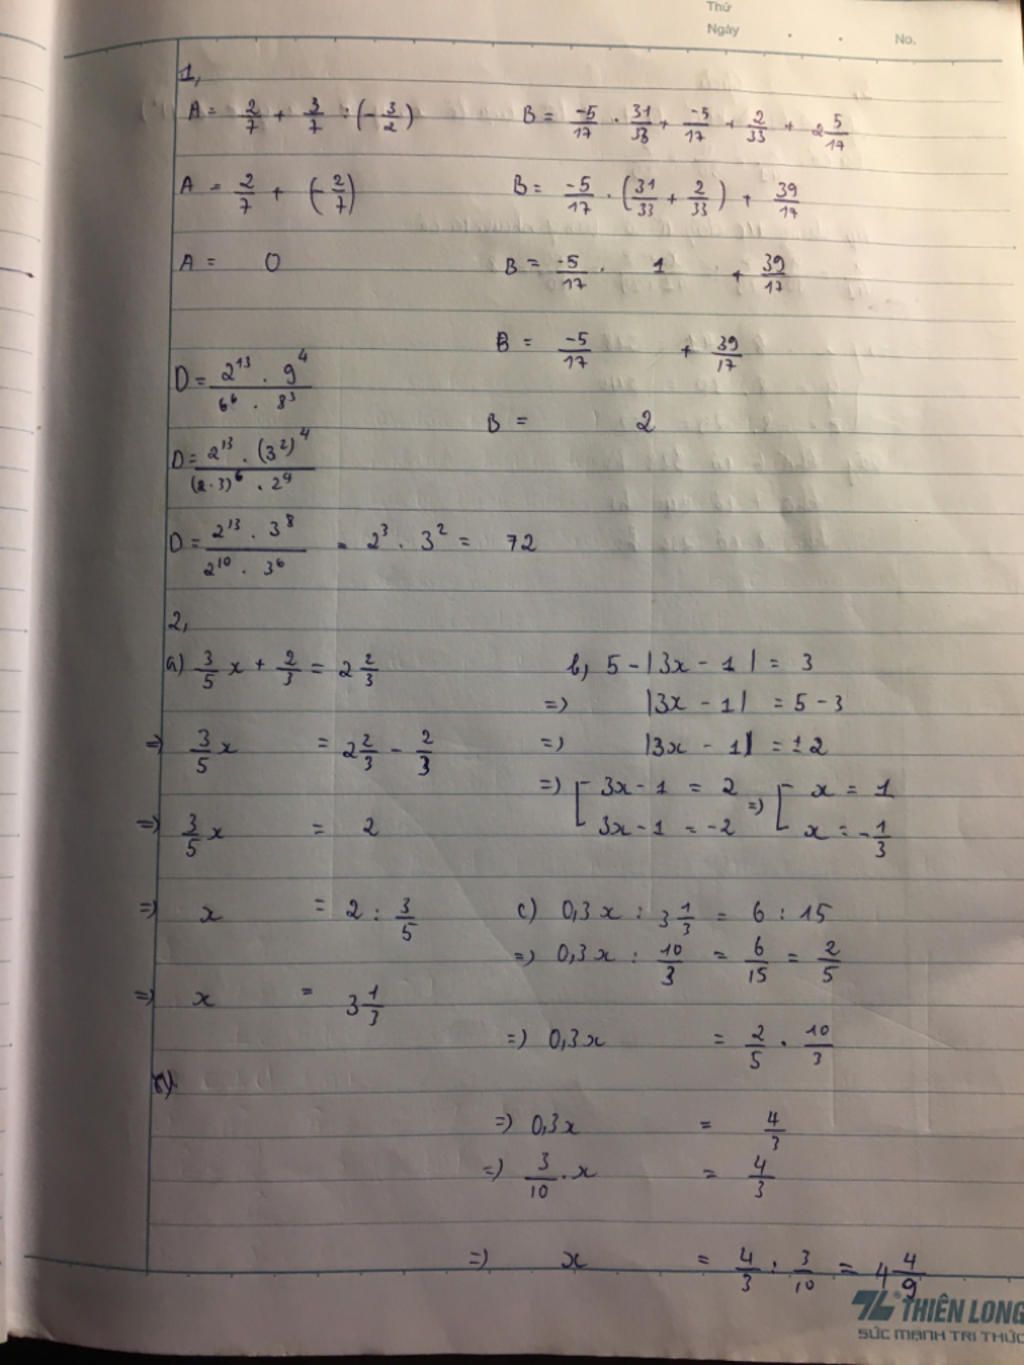 Thứ
Ngày . . No.
1,
A = 2/7 + 3/7 : (-3/2)
A = 2/7 + (-2/7)
A = 0
B = -5/17 . 31/33 + -5/17 + 2/33 + 2 5/17
B = -5/17 . (31/33 + 2/33) + 39/17
B = -5/17 . 1 + 39/17
B = -5/17 + 39/17
B = 2
D = 2^13 . 9^4 / 6^6 . 8^3
D = 2^13 . (3^2)^4 / (2.3)^6 . 2^9
D = 2^13 . 3^8 / 2^10 . 3^6 = 2^3 . 3^2 = 72
2,
a) 3/5 x + 2/3 = 2 2/3
=) 3/5 x = 2 2/3 - 2/3
=) 3/5 x = 2
=) x = 2 : 3/5
=) x = 3 1/3
b, 5 - |3x - 1| = 3
=) |3x - 1| = 5 - 3
=) |3x - 1| = ±2
=) [ 3x - 1 = 2 =) [ x = 1
3x - 1 = -2 x = -1/3
c) 0,3x : 3 1/3 = 6 : 15
=) 0,3x : 10/3 = 6/15 = 2/5
=) 0,3x = 2/5 . 10/3
=) 0,3x = 4/3
=) 3/10 . x = 4/3
=) x = 4/3 : 3/10 = 4 4/9
THIÊN LONG
SỨC MẠNH TRI THỨC